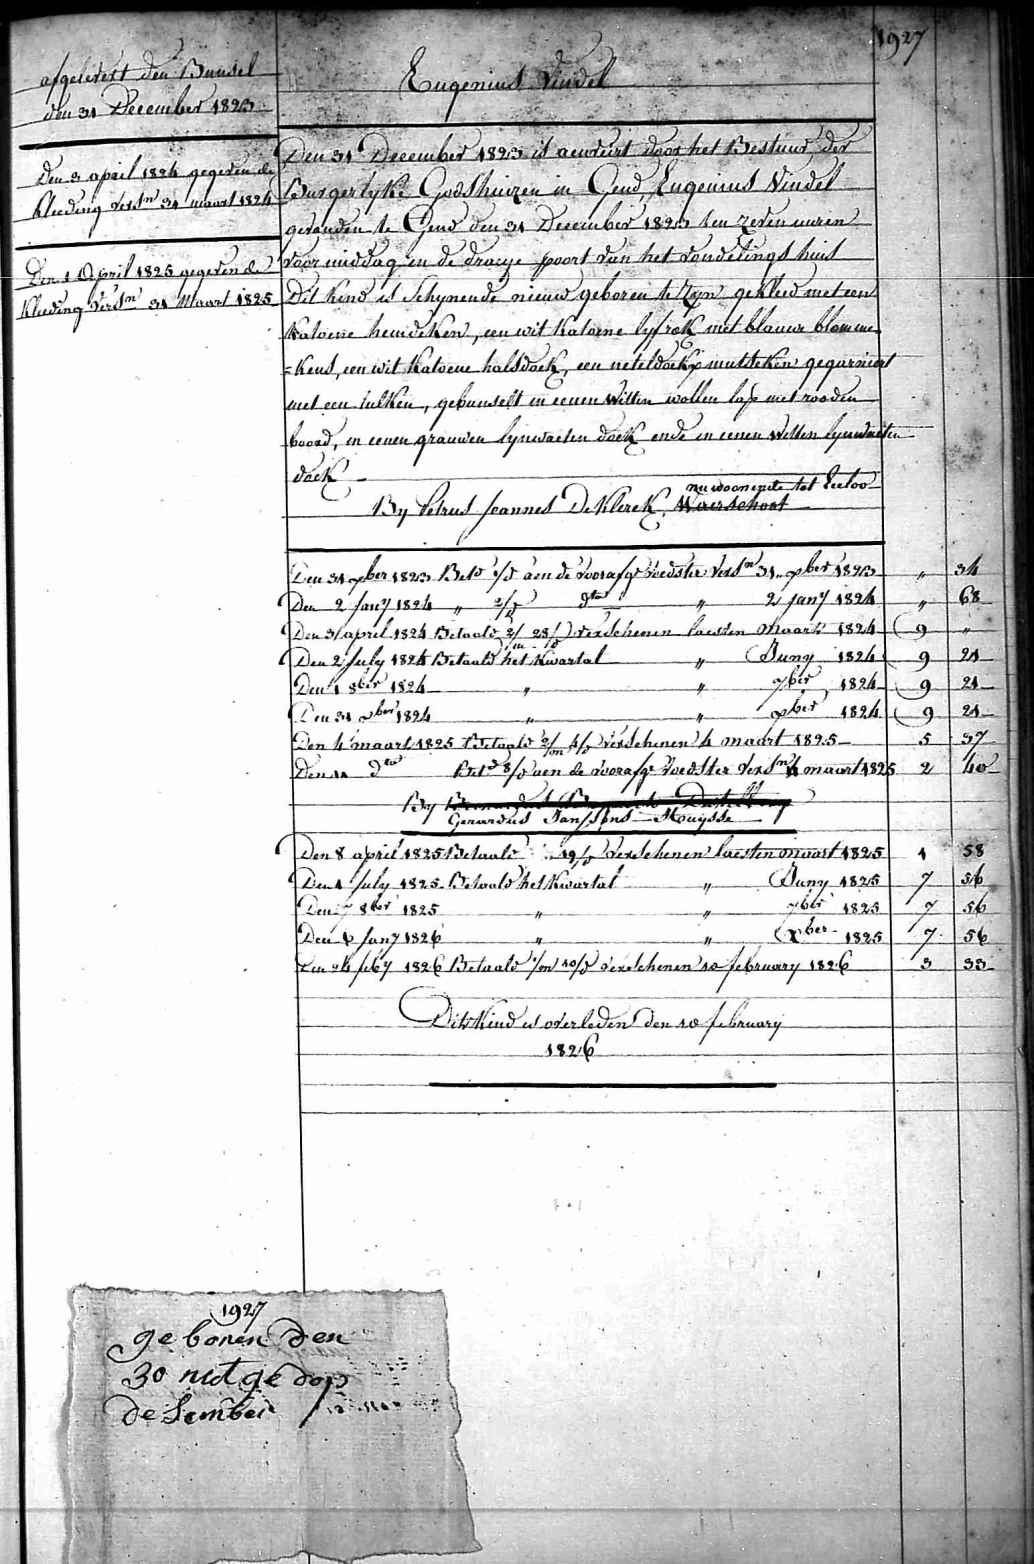 1927
Eugenius Vindel
afgelevert den Bunsel
den 31 December 1823
den 3 april 1824 gegeven de
kleeding versn 31 maart 1824
Den 1 April 1825 gegeven de
kleeding versn 31 Maart 1825
Den 31 December 1823 is aenveirt door het Bestuur der
Burgerlyke Godshuizen in Gend, Eugenius Vindel
gevonden te Gend den 31 December 1823 ten zeven uuren
voormiddag in de draeye poort van het vondelings huis
Dit kind is schynende nieuw geboren te zyn gekleed met een
katoene hemdeken, een wit katoene lyfrok met blauwe blomme
=kens, een wit katoene halsdoek, een neteldoek mutsken gegarniert
met een tulken, gebunselt in eenen witten wollen lap met rooden
boord, in eenen grauwen lynwaeten doek ende in eenen witten lynwaeten
doek
nu woonende tot Eecloo
By Petrus Joannes De Klerck, Waerschoot
Den 31 xber 1823 Betd 1/d aen de voorafge voedster versn 31 xber 1823 " 34
Den 2 Jany 1824 " 2/d dto " 2 Jany 1824 " 68
Den 3 april 1824 Betaald 2/m 28/d verschenen laesten maart 1824 9 "
Den 2 July 1824 Betaald het kwartal " Juny 1824 9 21
Den 1 8ber 1824 " " 7ber 1824 9 21
Den 31 xber 1824 " " xber 1824 9 21
Den 4 maart 1825 Betaald 2/m 4/d verschenen 4 maart 1825 5 37
Den 4 dto Betd 8/d aen de voorafge voedster versn 4 maart 1825 2 40
By
Gerardus Janssens Mouysse
Den 8 april 1825 Betaald 19/d verschenen laesten maart 1825 1 58
Den 1 July 1825 Betaald het kwartal " Juny 1825 7 56
Den 7 8ber 1825 " " 7ber 1825 7 56
Den 6 Jany 1826 " " xber 1825 7 56
Den 24 feby 1826 Betaald 1/m 10/d verschenen 10 february 1826 3 33
Dit kind is overleden den 10 february
1826
1927
geboren den
30 niet gedop
desember